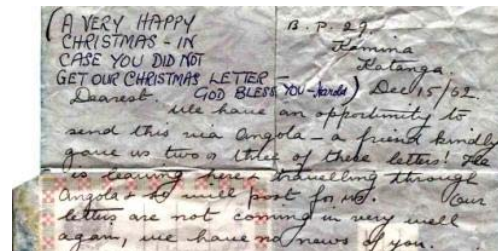 (A VERY HAPPY
CHRISTMAS - IN
CASE YOU DID NOT
GET OUR CHRISTMAS LETTER -
GOD BLESS YOU - Harold)
B. P. 29.
Kamina
Katanga.
Dec 15/62.
Dearest.
We have an opportunity to
send this via Angola - a friend kindly
gave us two or three of these letters! He
is leaving here & travelling through
Angola & he will post for us. Our
letters are not coming in very well
again, we have no news of you